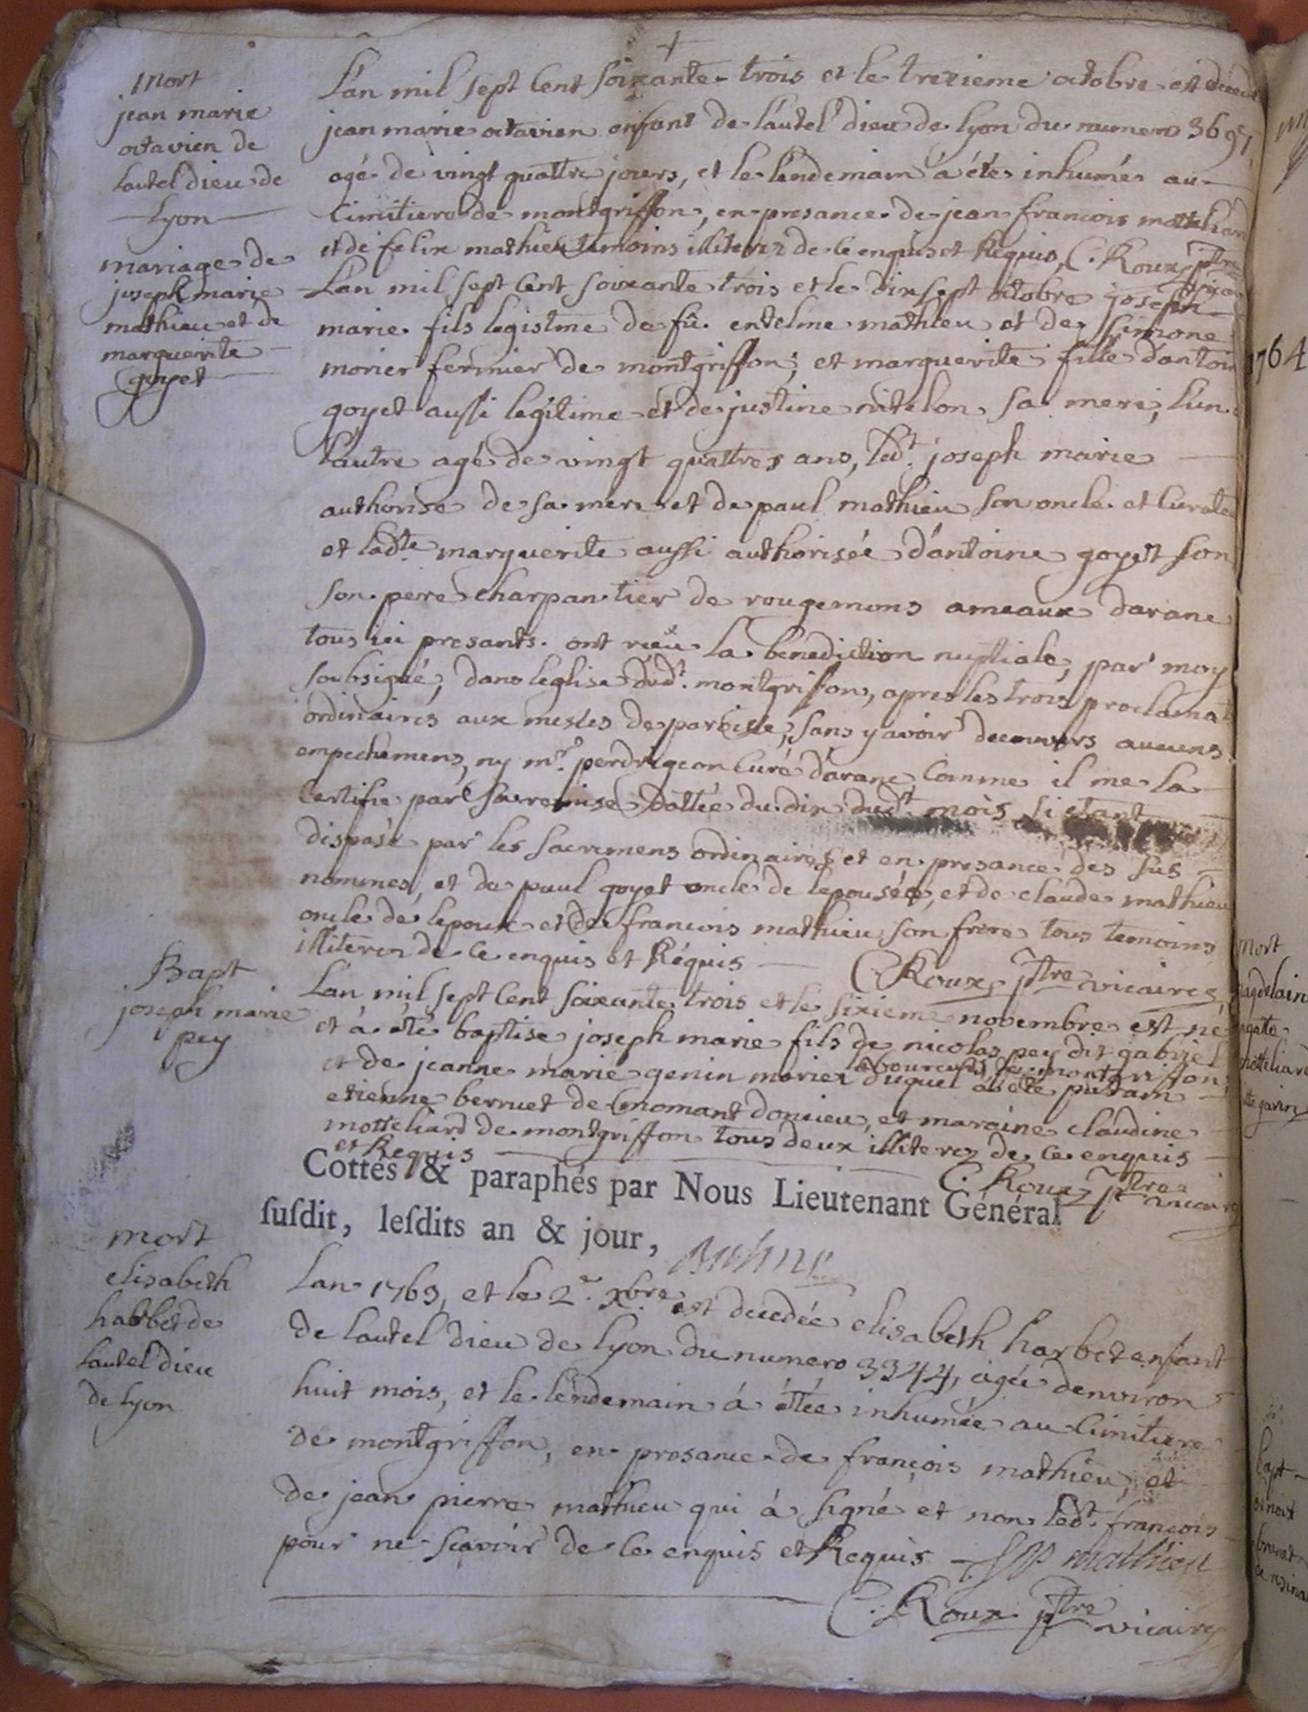 mort
jean marie
octavien de
lautel dieu de
Lyon
L'an mil sept Cent soixante-trois et le trezieme octobre est décedé
jean marie octavien enfant de lautel dieu de lyon du numero
agé de vingt quattre jours, et le lendemain à éte inhumé au
Cimitiere de montgriffon, en presance de jean francois motteliard
et de felix mathieu temoins illiterez de ce enquis et Requis, C. Roux, ptre
vicaire
mariage de
joseph marie
mathieu et de
marguerite
goyet
Lan mil sept Cent soixante trois et le dix sept octobre joseph
marie fils legistme de fû entelme mathieu et de Simone
morier fermier de montgriffon, et marguerite fille d'antoine
goyet aussi legitime et de justine nitelon sa mere, l'un
lautre agé de vingt quattres ans, ledt. joseph marie
authorisé de sa mere et de paul mathieu son oncle et Curateur
et ladte marguerite aussi authorisée d'antoine goyet son
son pere charpantier de rougemons ameaux darane
tous ici presants. ont reçu la bénédiction nuptiale, par moy
soubsigné, dans leglise dudt. montgriffon, apres les trois proclamat
ordinaires aux messes de paroisse, sans y avoir decouvers aucuns
empechemens, ny mr. perdrigeon Curé d'arane Comme il me la
Certifie par sa remise dattée du dix dudt mois, si etant
dispasé par les sacremens ordinaires et en presance des sus
nommés, et de paul goyet oncle de lepousée, et de claude mathieu
oncle de lepoux et de francois mathieu son frere tous temoins
illiterez de ce enquis et Réquis C. Roux, ptre vicaire
Bapt
joseph marie
pey
Lan mil sept Cent soixante trois et le sixieme novembre est né
et à été baptise joseph marie fils de nicolas pey dit gabriel
laboureur de montgriffon
et de jeanne marie genin morier duquel à été parain
etienne berruet de Conomant doncieu, et maraine claudine
motteliard de montgriffon tous deux illiterez de ce enquis
et Requis C. Roux, ptre vicaire
Cottés & paraphés par Nous Lieutenant Général
ſuſdit, leſdits an & jour,
mort
elisabeth
harbet de
lautel dieu
de lyon
Lan 1763, et le 2e. Xbre est decedée elisabeth harbet enfant
de lautel dieu de lyon du numero 3344, agée denviron
huit mois, et le lendemain à étée inhumée au Cimitiere
de montgriffon, en presance de françois mathieu, et
de jean pierre mathieu qui à signé et non ledt. françois
pour ne scavoir de ce enquis et Requis - JP mathieu
C. Roux ptre vicaire
1764
mort
magdelaine
agate
motteliard
Bapt